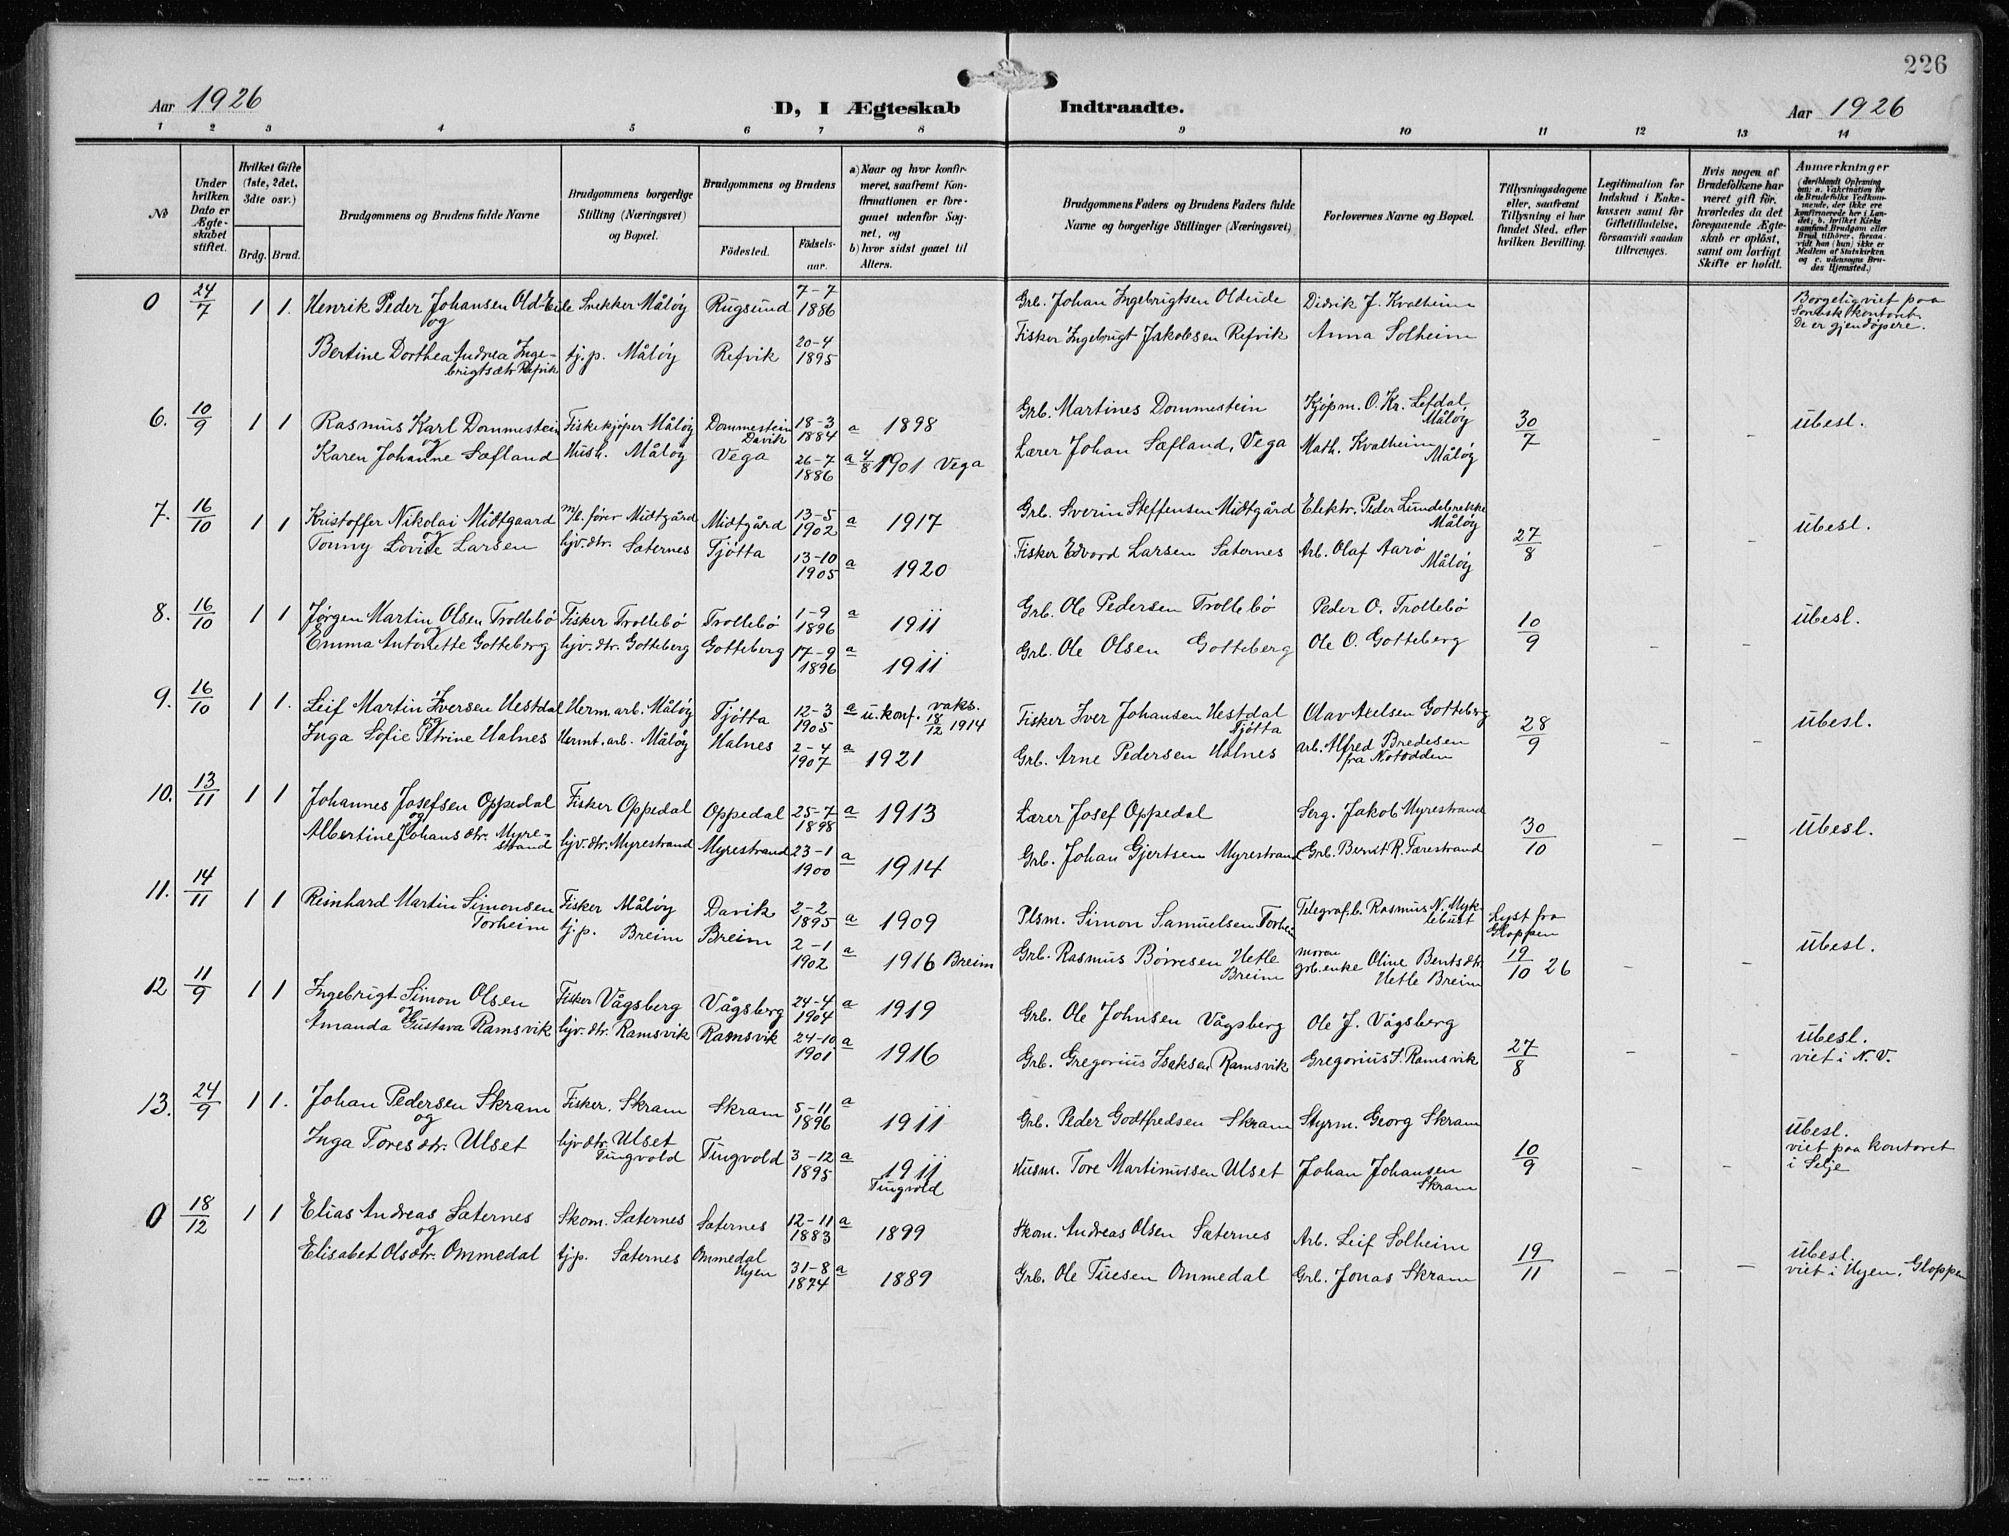 226
Aar 1926 D, I Ægteskab Indtraadte. Aar 1926
1 2 3 4 5 6 7 8 9 10 11 12 13 14
No
Under hvilken Dato er Ægteskabet stiftet.
Hvilket Gifte (1ste, 2det, 3die osv.)
Brdg. Brud.
Brudgommens og Brudens fulde Navne
Brudgommens borgerlige Stilling (Næringsvei) og Bopæl.
Brudgommens og Brudens
Fødested. Fødselsaar.
a) Naar og hvor konfirmeret, saafremt Konfirmationen er foregaaet udenfor Sognet, og
b) hvor sidst gaaet til Alters.
Brudgommens Faders og Brudens Faders fulde Navne og borgerlige Stillinger (Næringsvei)
Forlovernes Navne og Bopæl.
Tillysningsdagene eller, saafremt Tillysning ei har fundet Sted, efter hvilken Bevilling.
Legitimation for Indskud i Enkekassen samt for Giftetilladelse, forsaavidt saadan tiltrænges.
Hvis nogen af Brudefolkene har været gift før, hvorledes da det foregaaende Ægteskab er opløst, samt om lovligt Skifte er holdt.
Anmærkninger
(deriblandt Oplysning om: a. Vakcination for de Brudefolks Vedkommende, der ikke ere konfirmerede her i Landet; b. hvilket Kirkesamfund Brudgom eller Brud tilhører, forsaavidt han (hun) ikke er Medlem af Statskirken og c. udensogns Brudes Hjemsted.)
0 24/7 1 1. Henrik Peder Johansen Old-Eide Snekker Måløy Rugsund 7-7 1886 Grb. Johan Ingebrigtsen Oldeide Didrik J. Kvalheim Borgelig viet paa Sorenskr.kontoret. De er gjendøpere.
og
Bertine Dorthea Andrea Ingebrigtsdtr Refvik tj.p. Måløy Refvik 20-4 1895 Fisker Ingebrigt Jakobsen Refvik Anna Solheim
6. 10/9 1 1 Rasmus Karl Dommestein Fiskekjøper Måløy Dommestein Davik 18-3 1884 a 1898 Grb. Martines Dommestein Kjøpm. O. Kr. Lefdal, Måløy 30/7 - - ubesl.
og
Karen Johanne Sæfland Hush. Måløy Vega 26-7 1886 a 4/8 1901 Vega Lærer Johan Sæfland, Vega Math. Kvalheim Måløy
7. 16/10 1 1 Kristoffer Nikolai Midtgaard m/b. fører Midtgård Midtgård 13-5 1902 a 1917 Grb. Sverin Steffensen Midtgård Elektr. Peder Lundebrekke Måløy 27/8 - - ubesl.
og
Tonny Lovise Larsen hjv. dtr. Sæternes Tjøtta 13-10 1905 a 1920 Fisker Edvard Larsen Sæternes Arb. Olaf Aarø Måløy
8. 16/10 1 1 Jørgen Martin Olsen Trollebø Fisker Trollebø Trollebø 1-9 1896 a 1911 Grb. Ole Pedersen Trollebø Peder O. Trollebø 10/9 - - ubesl.
og
Emma Antonette Gotteberg hjv. dtr. Gotteberg Gotteberg 17-9 1896 a 1911 Grb. Ole Olsen Gotteberg Ole O. Gotteberg
9. 16/10 1 1. Leif Martin Iversen Hestdal Herm. arb. Måløy Tjøtta 12-3 1905 a u. konf. vaks. 18/12 1914 Fisker Iver Johansen Hestdal Tjøtta Olav Axelsen Gotteberg 28/9 - - ubesl.
og
Inga Sofie Petrine Halnes Hermt. arb. Måløy Halnes 2-4 1907 a 1921 Grb. Arne Pedersen Halnes arb. Alfred Bredesen fra Notodden
10. 13/11 1 1 Johannes Josefsen Oppedal Fisker Oppedal Oppedal 25-7 1898 a 1913 Lærer Josef Oppedal Serg. Jakob Myrestrand 30/10 - - ubesl.
og
Albertine Johans dtr. Myrestrand hjv. dtr. Myrestrand Myrestrand 23-1 1900 a 1914 Grb. Johan Gjertsen Myrestrand Grb. Bernt R. Færestrand
11. 14/11 1 1 Reinhard Martin Simonsen Torheim Fisker Måløy Davik 2-2 1895 a 1909 Plsm. Simon Samuelsen Torheim Telegraf.b. Rasmus N. Myklebust Lyst fra Gloppen 19/10 26 - - ubesl.
tj.p. Breim Breim 2-1 1902 a 1916 Breim Grb. Rasmus Børresen Hetle Breim moren grb.enke Oline Bentsdtr. Hetle Breim
12 11/9 1 1 Ingebrigt Simon Olsen Fisker Vågsberg Vågsberg 24-4 1904 a 1919 Grb. Ole Johnsen Vågsberg Ole J. Vågsberg 27/8 - - ubesl. viet i N. V.
og
Amanda Gustava Ramsvik hjv. dtr. Ramsvik Ramsvik 24-10 1901 a 1916 Grb. Gregorius Isaksen Ramsvik Gregorius I. Ramsvik
13. 24/9 1 1. Johan Pedersen Skram Fisker. Skram Skram 5-11 1896 a 1911 Grb. Peder Godtfredsen Skram Styrm. Georg Skram 10/9 - - ubesl. viet paa kontoret i Selje
og
Inga Toresdtr. Ulset hjv. dtr. Ulset Tingvold Tingvold 3-12 1895 a 1911 Tingvold Husm. Tore Martinussen Ulset Johan Johansen Skram
0 18/12 1 1 Elias Andreas Sæternes Skom. Sæternes Sæternes 12-11 1883 a 1899 Skom. Andreas Olsen Sæternes Arb. Leif Solheim 19/11 - - - ubesl. viet i Hyen, Gloppen
og
Elisabet Olsdtr. Ommedal tj.p. Sæternes Ommedal Hyen 31-8 1874 a 1889 Grb. Ole Tuesen Ommedal Grb. Jonas Skram